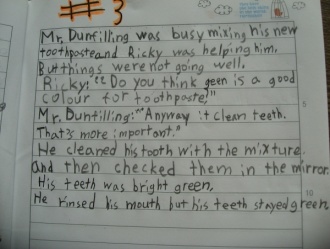 #3
Mr. Dunfilling was busy mixing his new
toothpaste and Ricky was helping him.
But things were not going well.
Ricky: "Do you think geen is a good
colour for toothpaste!"
Mr. Dunfilling: "Anyway it clean teeth.
That's more important."
He cleaned his tooth with the mixture.
and then checked them in the mirror.
His teeth was bright green.
He rinsed his mouth but his teeth stayed green
5
10